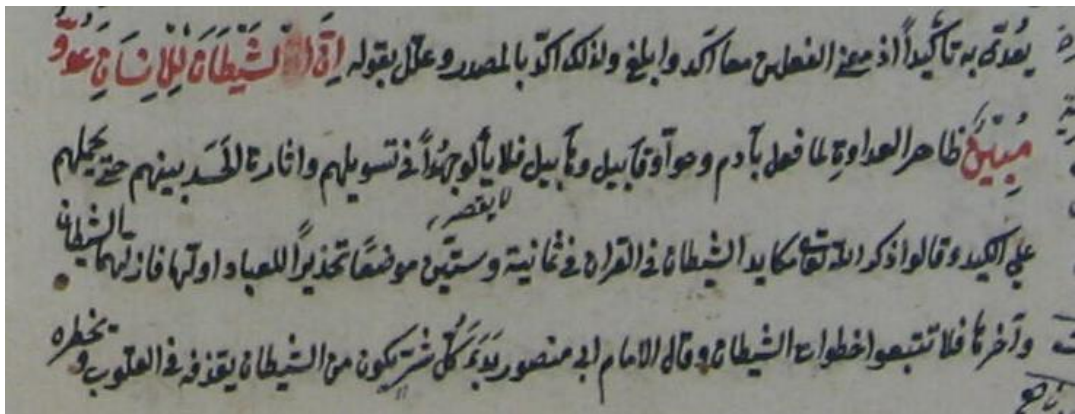 يُعدّى به تأكيداً اذ معنى الفعلين معا آكد وابلغ ولذلك اكدّ بالمصدر وعلل بقوله اِنَّ الشَّيْطَانَ لِلْاِنْسَانِ عَدُوٌّ
مُبِينٌ ظاهر العداوةِ لما فعل بآدم وحوآ وقابيل وهابيل فلا يألو جهُداً في تسويلهم واثارة الحَسَد بينهم حتى يحملهم
لا يقصر
على الكيد وقالوا ذكر الله تعالى مكايد الشيطان في القران في ثمانية وستّين موضعًا تحذيراً للعباد اولها فازلهما الشيطان
وآخرها فلا تتبعوا خطوات الشيطان وقال الامام ابو منصور كلّ شرّ يكون من الشيطان يقذفه في القلوب ويخطره